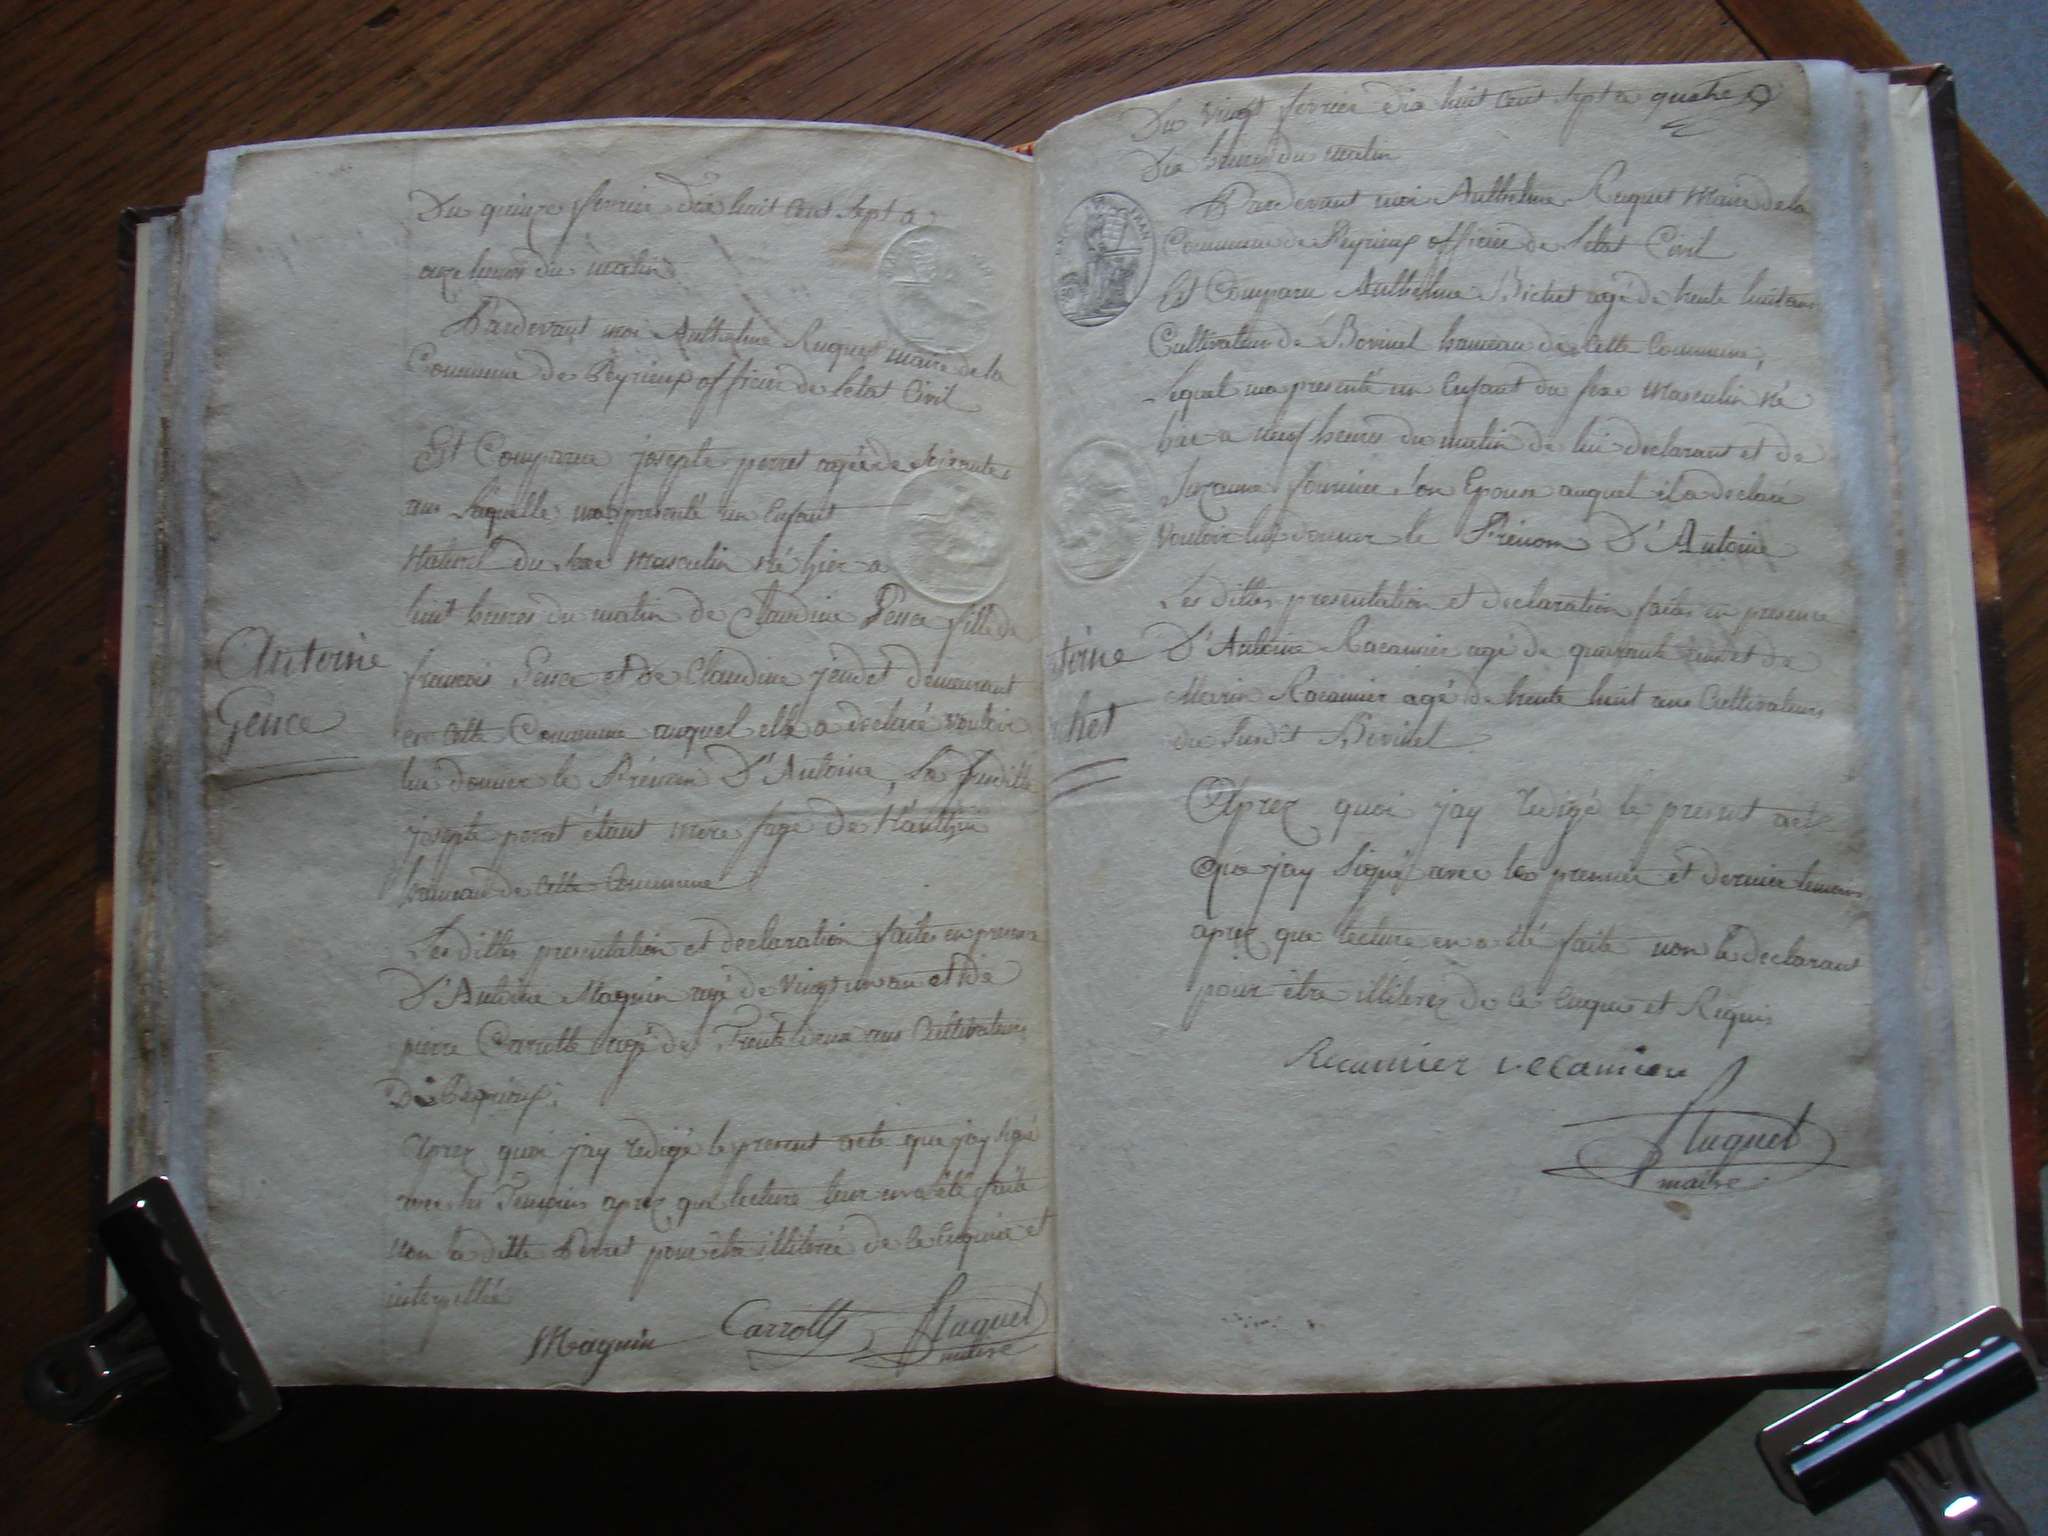 Du quinze fevrier dix huit cent sept a
onze heures du matin
Pardevant moi Anthelme Ruquet maire de la
Commune de Peyrieux officier de letat Civil
Est Comparue josepte perret agée de soixante
ans Laquelle ma presenté un Enfant
Naturel du sexe masculin né hier a
huit heures du matin de Claudine Gence fille de
Antoine
Gence
francois Gence et de Claudine jendet demeurant
en cette Commune auquel elle a declaré vouloir
lui donner le Prénom D'Antoine, La susditte
josepte perret étant mere sage de
hameau de cette Commune
Les dittes presentation et declaration faites en presence
D'Antoine Maguin agé de vingt un an et de
pierre Carrotte agé de Trente deux ans Cultivateurs
De Peyrieux.
Aprez quoi jay redigé le present acte que jay signé
avec les Temoins aprez que lecture leur en a été faite
non la ditte Perret pour etre illiterée de ce enquise et
interpellée
Maguin Carrotte Ruquet
maire
Du vingt fevrier dix huit cent sept a quatre
Dix heures du matin
Pardevant moi Anthelme Ruquet Maire de la
Commune de Peyrieux officier de letat Civil
Est Comparu Anthelme Bichet agé de trente huit ans
Cultivateur de Bovinel hameau de cette Commune,
Lequel ma presenté un Enfant du sexe masculin né
hier a neuf heures du matin de lui declarant et de
Suzanne fournier son Epouse auquel il a declaré
vouloir lui donner le Prénom D'Antoine
Les dittes presentation et declaration faites en presence
toine
chet
D'Antoine Racamier agé de quarante ans et de
Marin Racamier agé de trente huit ans Cultivateurs
du susdit Bovinel
Aprez quoi jay redigé le present acte
que jay signé avec les premier et dernier temoins
aprez que lecture en a été faite non le declarant
pour être illiterez de ce enquis et Requis
Recamier recamier
Ruquet
maire